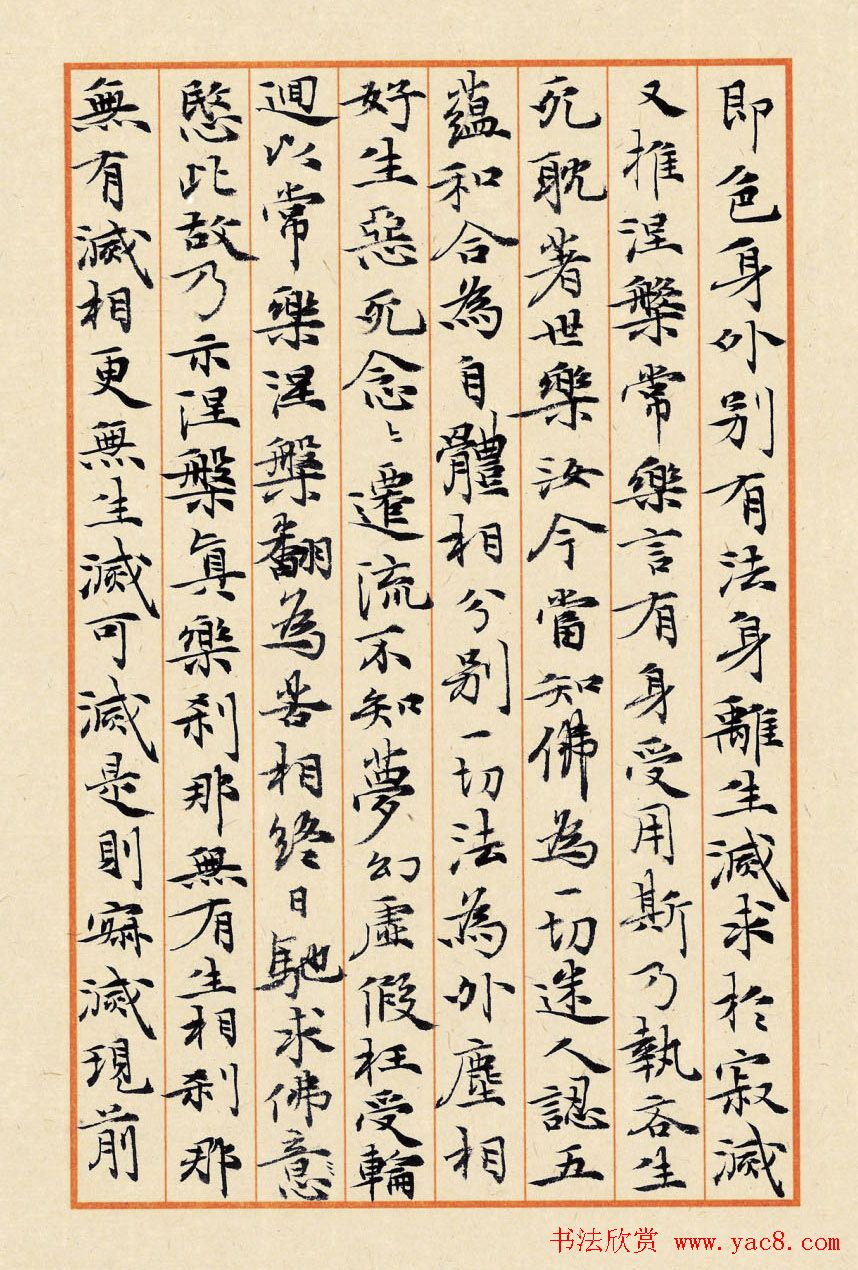 即色身外別有法身離生滅求於寂滅
又推涅槃常樂言有身受用斯乃執吝生
死耽著世樂汝今當知佛為一切迷人認五
蘊和合為自體相分別一切法為外塵相
好生惡死念〻遷流不知夢幻虛假枉受輪
迴以常樂涅槃翻為苦相終日馳求佛意
愍此故乃示涅槃真樂剎那無有生相剎那
無有滅相更無生滅可滅是則寂滅現前
书法欣赏 www.yac8.com